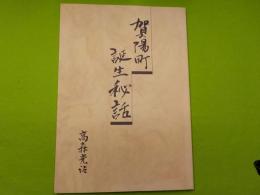 賀陽町
誕生秘話
高森光治